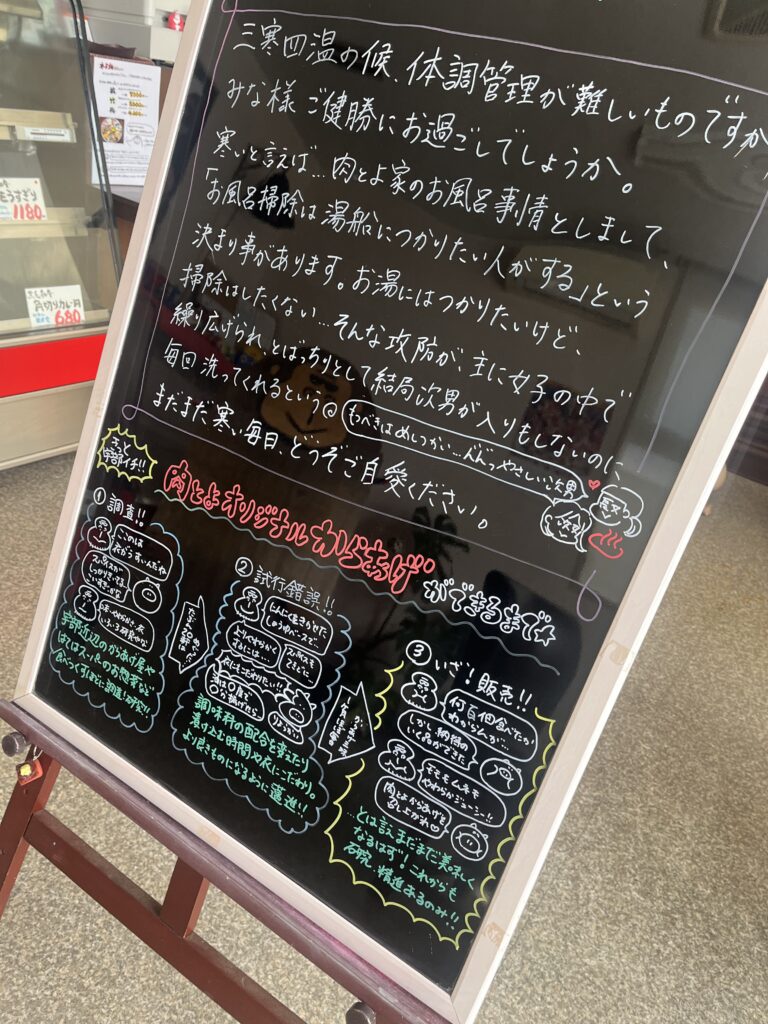 三寒四温の候、体調管理が難しいものですが
みな様 ご健勝にお過ごしでしょうか。
寒いと言えば…肉とよ家のお風呂事情としまして、
「お風呂掃除は湯船につかりたい人がする」という
決まり事があります。お湯にはつかりたいけど、
掃除はしたくない…そんな攻防が、主に女子の中で
繰り広げられ、とばっちりとして結局次男が入りもしないのに
毎回洗ってくれるという@
まだまだ寒い毎日、どうぞご自愛ください。
やさしい次男
きっと
宇部イチ!!
肉とよオリジナルからあげができるまで
①調査!!
ここのは
衣がうすいんだね
宇部近辺のからあげ屋や
はてはスーパーのお惣菜など
食べつくすほどに調査!研究!!
②試行錯誤!!
にんにくをきかせた
しょうゆベースで…
よりやわらかく
するには…
調味料の配合を変えたり
漬け込む時間や衣にこだわり。
より良きものになるように邁進!!
③いざ!販売!!
何百個食べたか
わからんが…
しかし納得の
いく品ができた
モモもムネも
やわらかジューシー!!
肉とよからあげを
召し上がれ
…とは言えまだまだ美味しく
なるはず!これからも
研究、精進あるのみ!!
うすぎり
1180
角切りカレー用
680